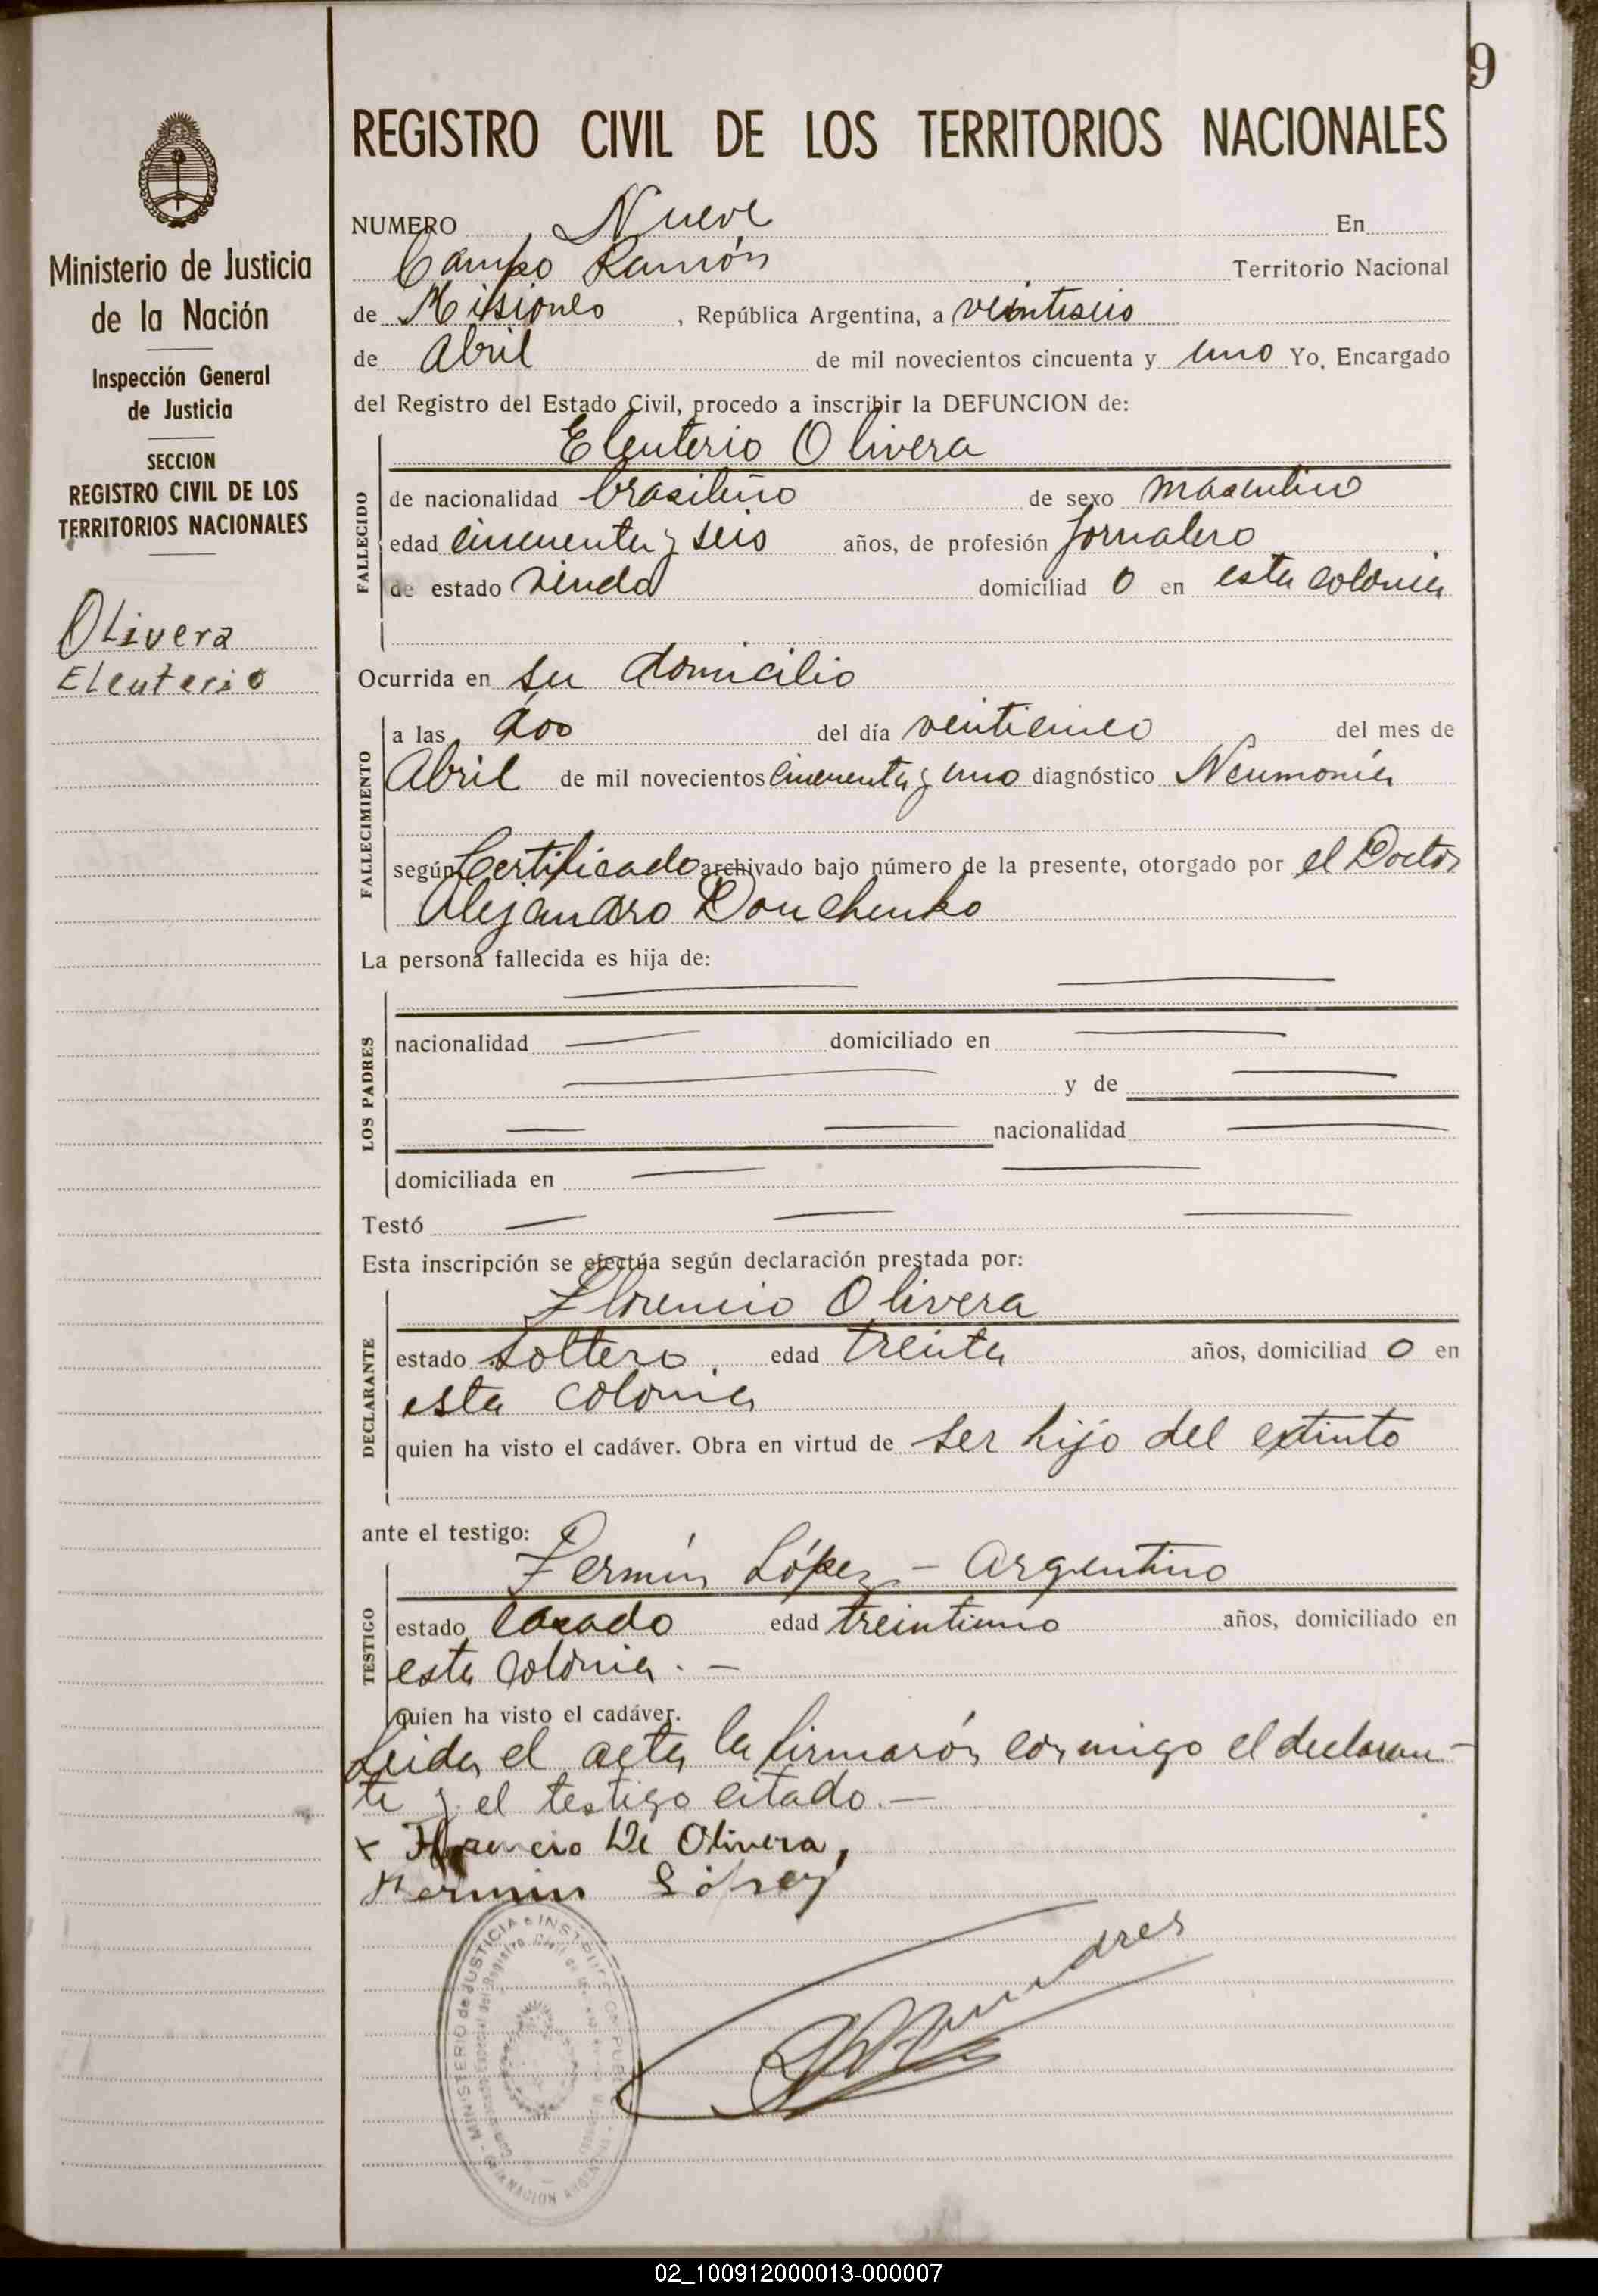 9
REGISTRO CIVIL DE LOS TERRITORIOS NACIONALES
Ministerio de Justicia
de la Nación
Inspección General
de Justicia
SECCION
REGISTRO CIVIL DE LOS
TERRITORIOS NACIONALES
Olivera
Eleuterio
NUMERO Nueve En
Campo Ramón Territorio Nacional
de Misiones, República Argentina, a veintiseis
de Abril de mil novecientos cincuenta y uno Yo, Encargado
del Registro del Estado Civil, procedo a inscribir la DEFUNCION de:
FALLECIDO
Eleuterio Olivera
de nacionalidad brasileño de sexo masculino
edad cincuenta y seis años, de profesión Jornalero
de estado viudo domiciliad o en esta colonia
Ocurrida en su domicilio
FALLECIMIENTO
a las dos del día veinticinco del mes de
Abril de mil novecientos cincuenta y uno diagnóstico Neumonía
según Certificado archivado bajo número de la presente, otorgado por el Doctor
Alejandro Donchenko
La persona fallecida es hija de:
LOS PADRES
nacionalidad domiciliado en
y de
nacionalidad
domiciliada en
Testó
Esta inscripción se efectúa según declaración prestada por:
DECLARANTE
Florencio Olivera
estado soltero. edad treinta años, domiciliad o en
esta colonia
quien ha visto el cadáver. Obra en virtud de ser hijo del extinto
ante el testigo:
TESTIGO
Fermín López - Argentino
estado casado edad treintiuno años, domiciliado en
esta colonia. -
quien ha visto el cadáver.
Leida el acta la firmarón conmigo el declaran-
te y el testigo citado. -
x Florencio De Olivera,
Fermin López
MINISTERIO de JUSTICIA e
NACION
02_100912000013-000007